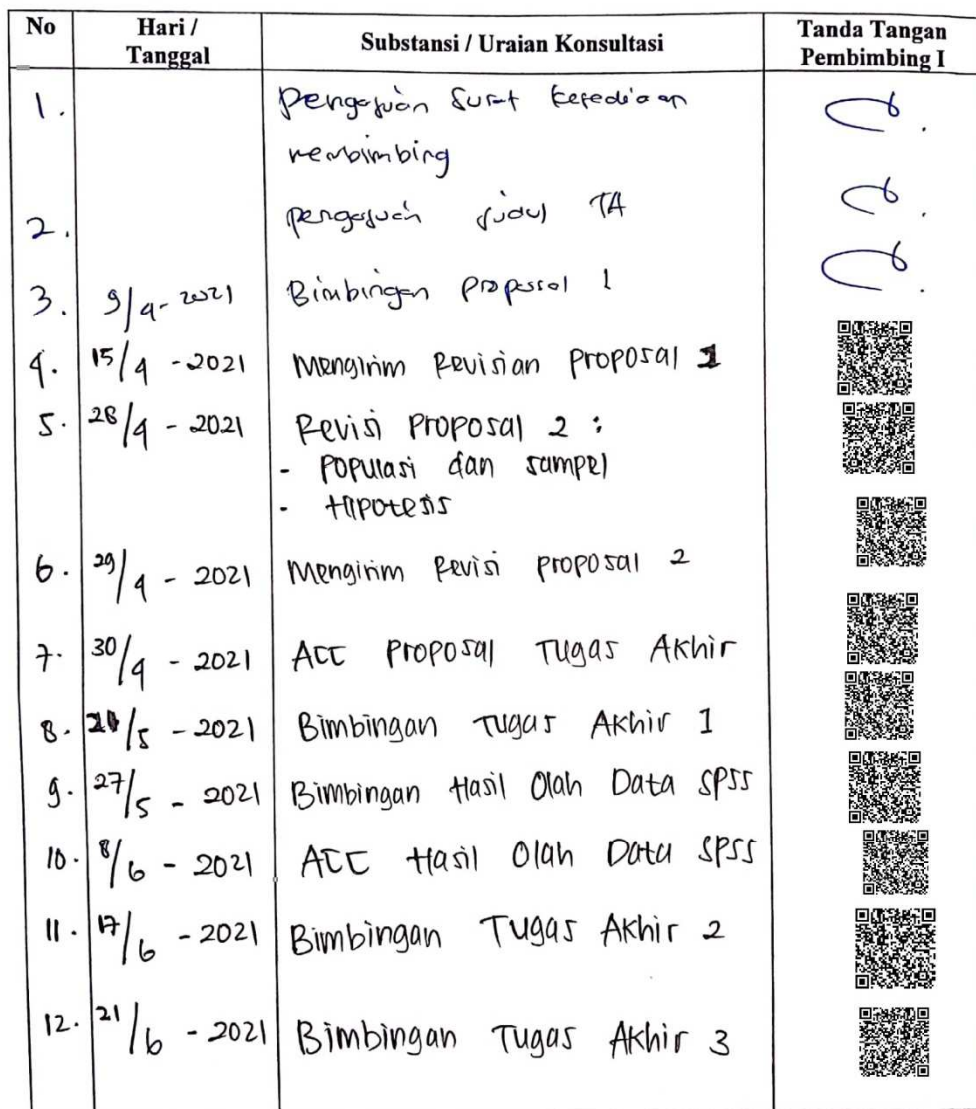 No Hari / Tanggal Substansi / Uraian Konsultasi Tanda Tangan Pembimbing I
1. Pengajuan Surat kesediaan
membimbing
2. pengajuan judul TA
3. 9/4-2021 Bimbingan Proposal 1
4. 15/4 - 2021 Mengirim Revisian Proposal 1
5. 28/4 - 2021 Revisi Proposal 2 :
- Populasi dan sampel
- Hipotesis
6. 29/4 - 2021 Mengirim Revisi proposal 2
7. 30/4 - 2021 ACC Proposal Tugas Akhir
8. /5 - 2021 Bimbingan Tugas Akhir 1
9. 27/5 - 2021 Bimbingan Hasil Olah Data SPSS
10. 8/6 - 2021 ACC Hasil Olah Data SPSS
11. 17/6 - 2021 Bimbingan Tugas Akhir 2
12. 21/6 - 2021 Bimbingan Tugas Akhir 3